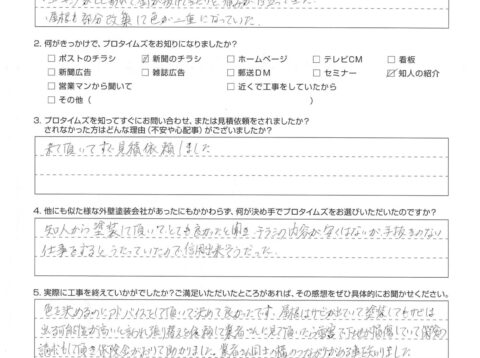 屋根も部分改集に色が二重になっていた。
2. 何がきっかけで、プロタイムズをお知りになりましたか？
□ ポストのチラシ ☑ 新聞のチラシ □ ホームページ □ テレビCM □ 看板
□ 新聞広告 □ 雑誌広告 □ 郵送DM □ セミナー ☑ 知人の紹介
□ 営業マンから聞いて □ 近くで工事をしていたから
□ その他（ ）
3. プロタイムズを知ってすぐにお問い合わせ、または見積依頼をされましたか？
されなかった方はどんな理由（不安や心配事）がございましたか？
来て頂いてすぐ見積依頼しました
4. 他にも似た様な外壁塗装会社があったにもかかわらず、何が決め手でプロタイムズをお選びいただいたのですか？
知人から塗装して頂いてとても良かったと聞き チラシの内容が安くはないが手抜きのない
仕事をするとうたっていたので信用出来そうだった。
5. 実際に工事を終えていかがでしたか？ご満足いただいたところがあれば、その感想をぜひ具体的にお聞かせください。
色を決めるのにアドバイスをして頂いて決めて良かったです。屋根は
出る可能性が高いと言われ張り替えを依頼して業者さんに見て頂いたら
頂き保険金がおりて助かりました。業者さん同士の横のつながりがある事を知りました